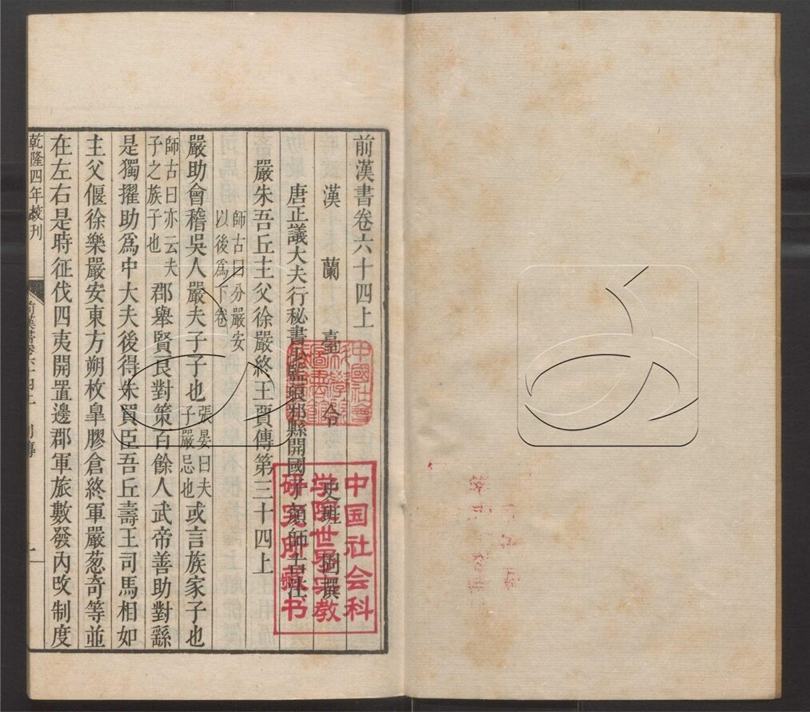 前漢書卷六十四上
漢蘭臺令史班固撰
唐正議大夫行秘書少監琅邪縣開國子顏師古注
嚴朱吾丘主父徐嚴終王賈傳第三十四上
師古曰分嚴安
以後爲下卷
嚴助會稽吳人嚴夫子子也
張晏曰夫
子嚴忌也
或言族家子也
師古曰亦云夫
子之族子也
郡舉賢良對策百餘人武帝善助對繇
是獨擢助爲中大夫後得朱買臣吾丘壽王司馬相如
主父偃徐樂嚴安東方朔枚臯膠倉終軍嚴葱奇等並
在左右是時征伐四夷開置邊郡軍旅數發內改制度
乾隆四年校刊
前漢書卷六十四上
中国社会科
学院世界宗教
研究所藏书